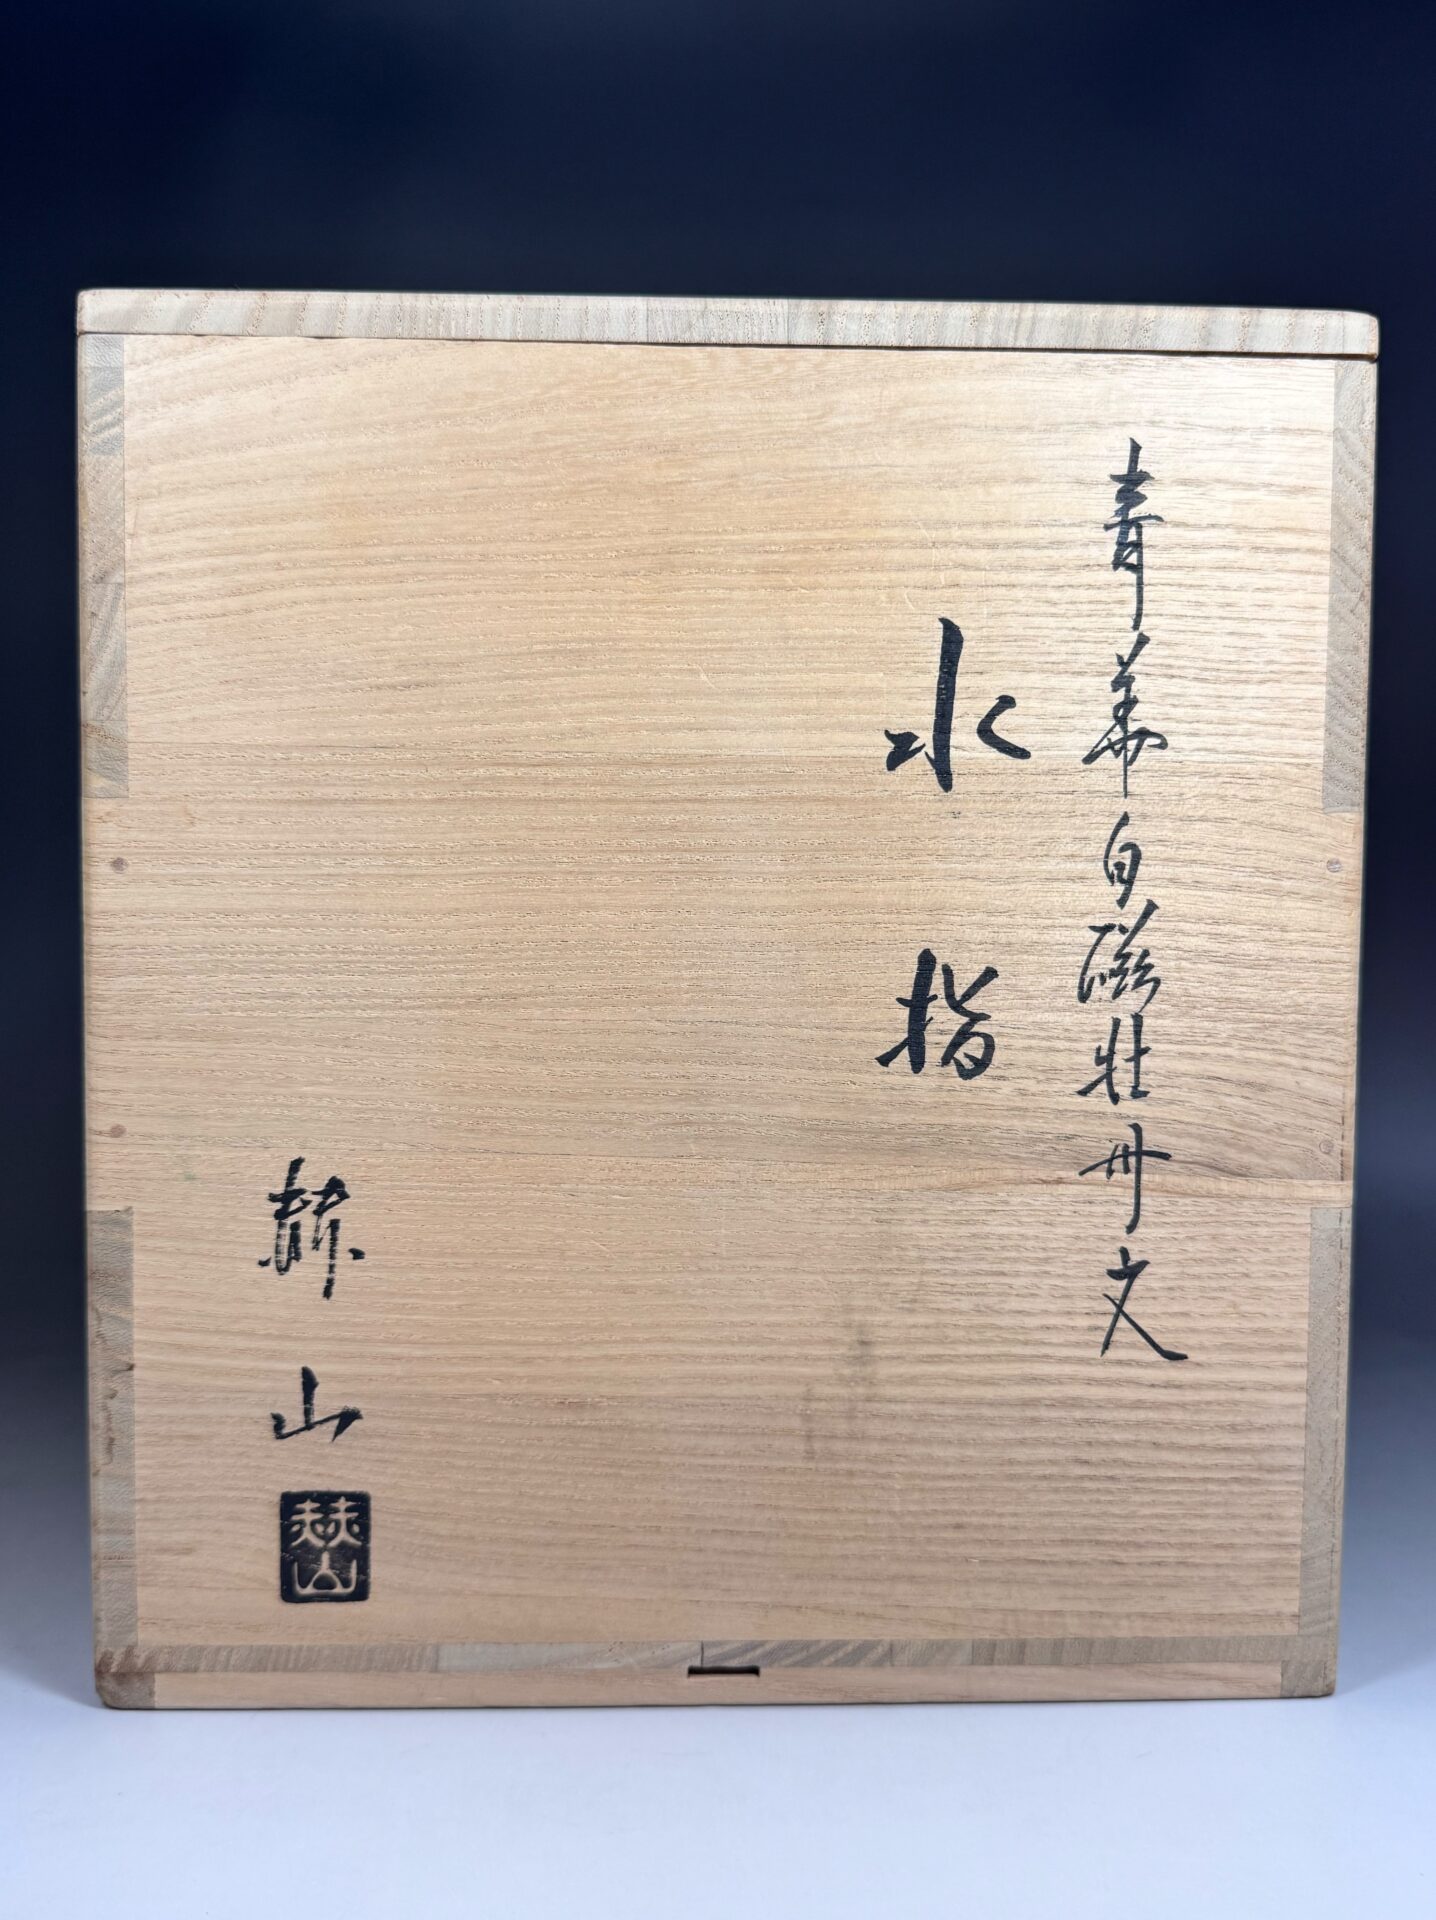 青華白磁牡丹文
水指
赫山
赫山